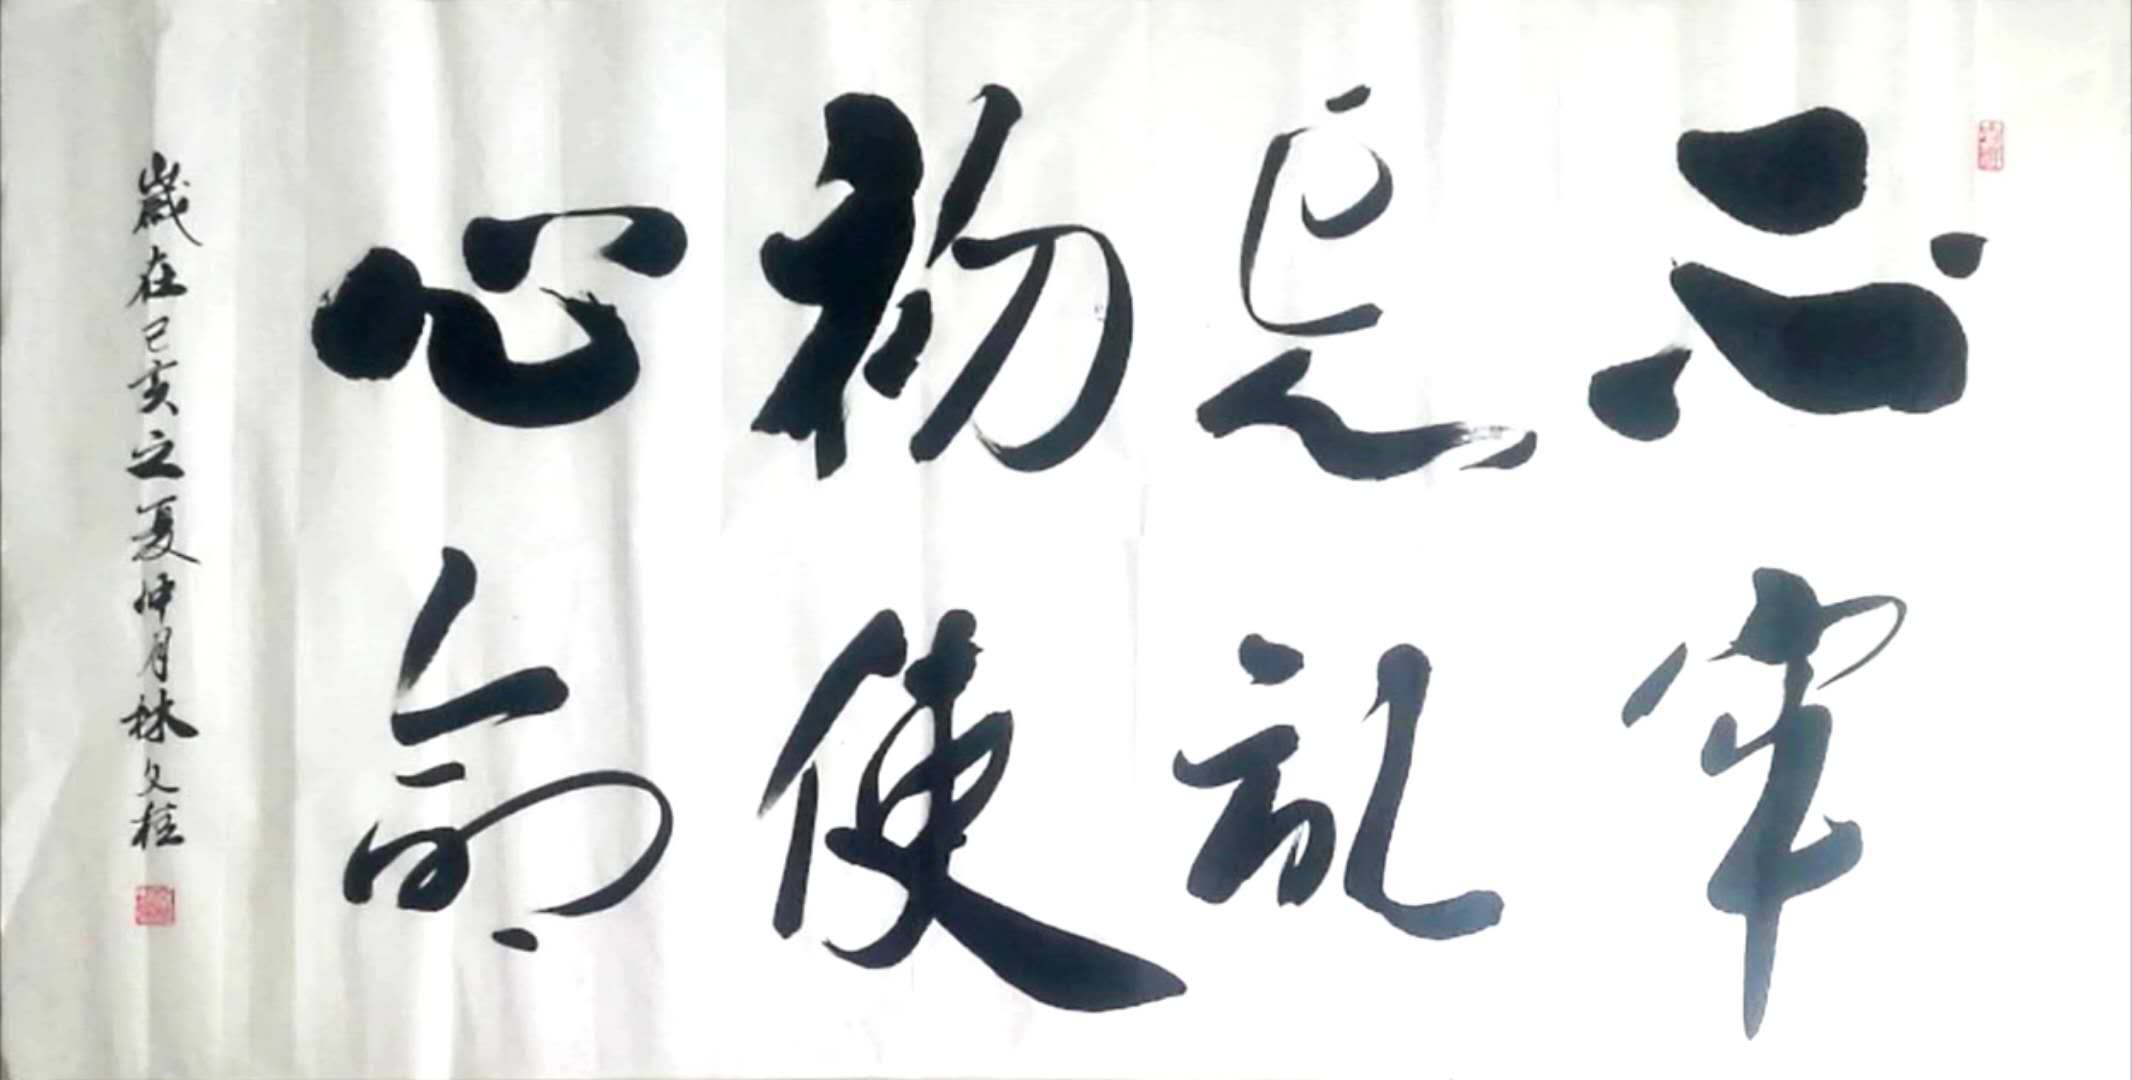 不忘初心
牢記使命
歲在己亥之夏仲月林文程